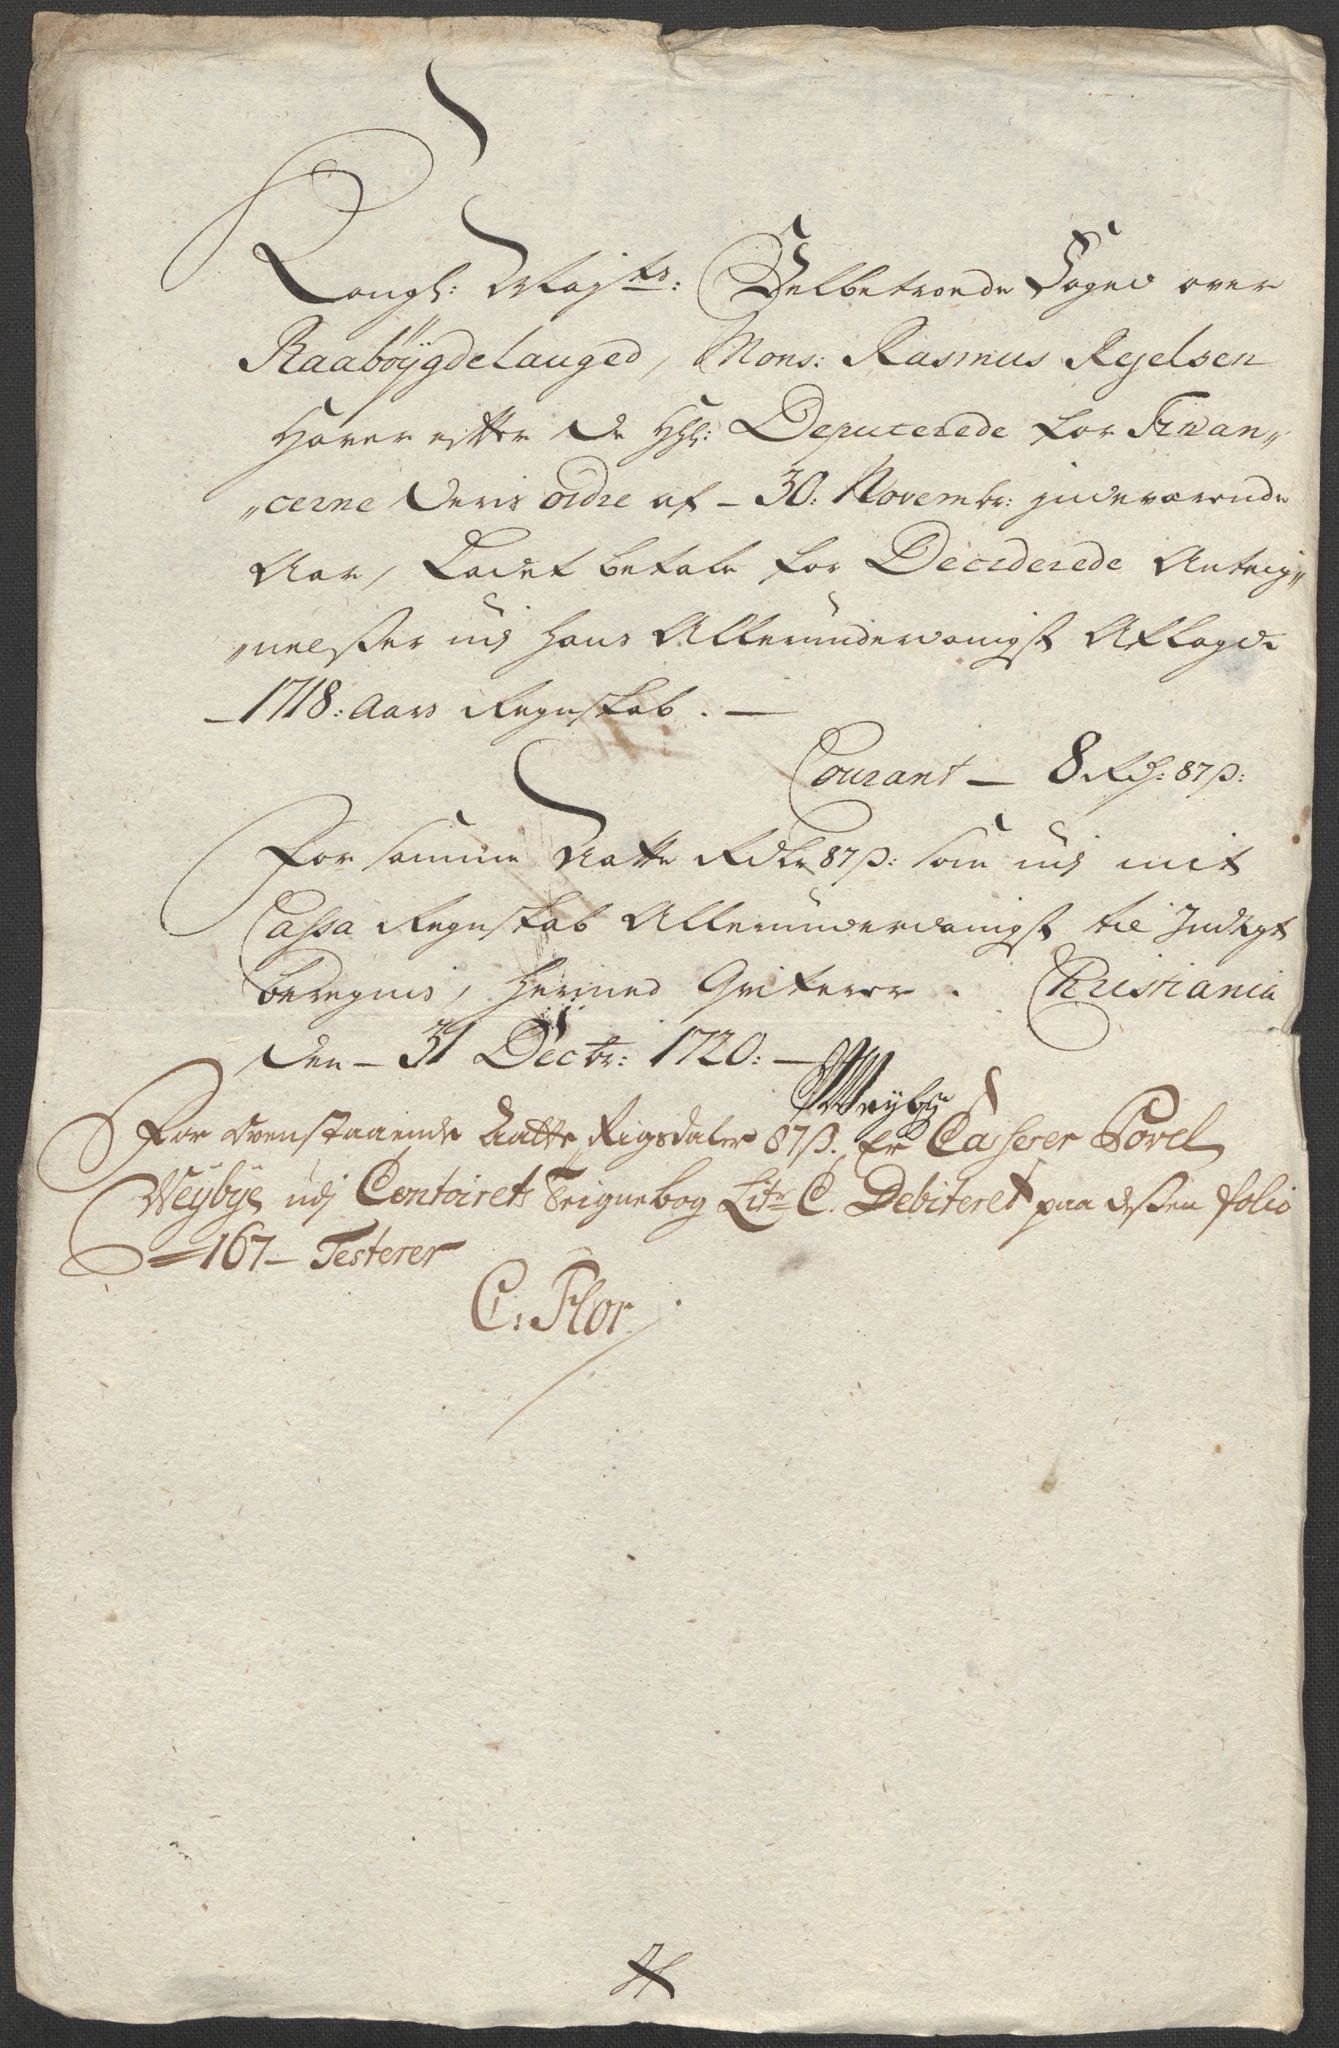 Kongl: Mayts: Velbetroede Foged over
Raabøygdelauged, Mons: Rasmus Rejelsen
Haver efter de HHr: Deputerede for Finan„
„cerne deris ordre af – 30: Novembr: indeværende
Aar, Ladet betale for Deciderede Anteig„
„nelsser udj hans Allerunderdanigst Aflagde
– 1718: Aars Regnskab. –
Courant – 8 Rd: 87 ß:
For samme Aatte Rdlr 87 ß: som udj mit
Cassa Regnskab Allerunderdanigst til Indtegt
beregnis, hermed Qviterer. Christiania
den – 31 Decbr: 1720: –
Weybye
For ovenstaaende Aatte Rigsdaler 87 ß. Er Casserer Povel
Weybye udj Contoirets Teignebog Litr C. Debiteret paa dessen folio
– 167 – Testerer
C: Flor